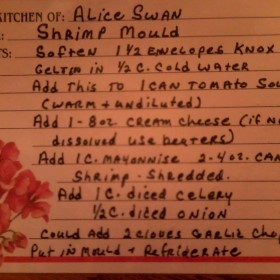 KITCHEN OF: ALICE SWAN
: SHRIMP MOULD
TS: SOFTEN 1 1/2 ENVELOPES KNOX
GELTIN IN 1/2 C. COLD WATER
ADD THIS TO 1 CAN TOMATO SOU
(WARM + UNDILUTED)
ADD 1-8OZ. CREAM CHEESE (IF N
DISSOLVED USE BEATERS)
ADD 1 C. MAYONNISE 2-4OZ. CAN
SHRIMP - SHREDDED.
ADD 1C. DICED CELERY
1/2C. DICED ONION
COULD ADD 2 CLOVES GARLIC CHO
PUT IN MOULD + REFRIDERATE